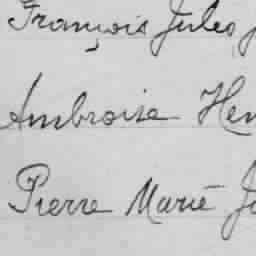 François Jules
Ambroise Hen
Pierre Marie